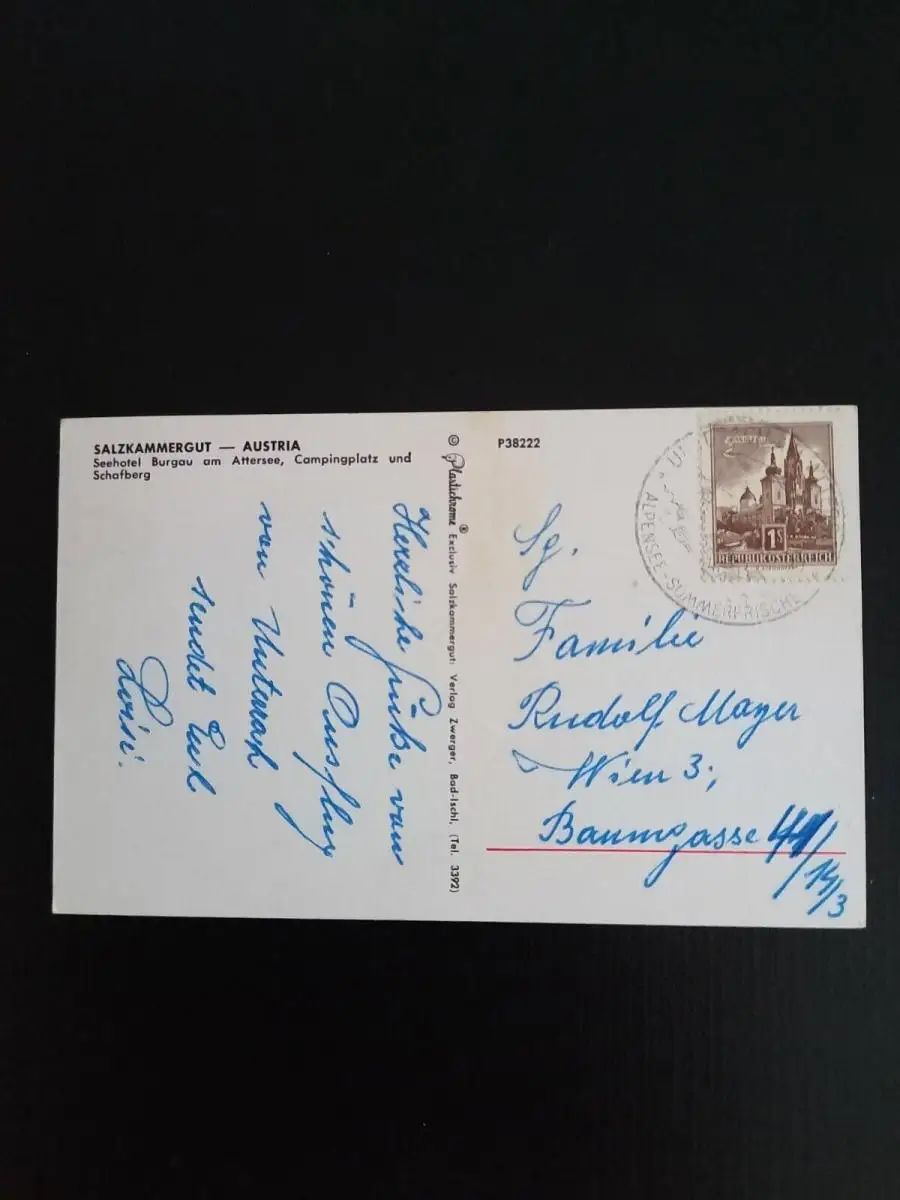 SALZKAMMERGUT — AUSTRIA
Seehotel Burgau am Attersee, Campingplatz und
Schafberg
Herzliche Grüße vom
schönen Ausflug
von Unterach
sendet Euch
© Plastichrome® Exclusiv Salzkammergut: Verlag Zwerger, Bad-Ischl, (Tel. 3392)
P38222
1S
REPUBLIK ÖSTERREICH
ALPENSEE-SOMMERFRISCHE
Sg.
Familie
Rudolf Mayer
Wien 3,
Baumgasse